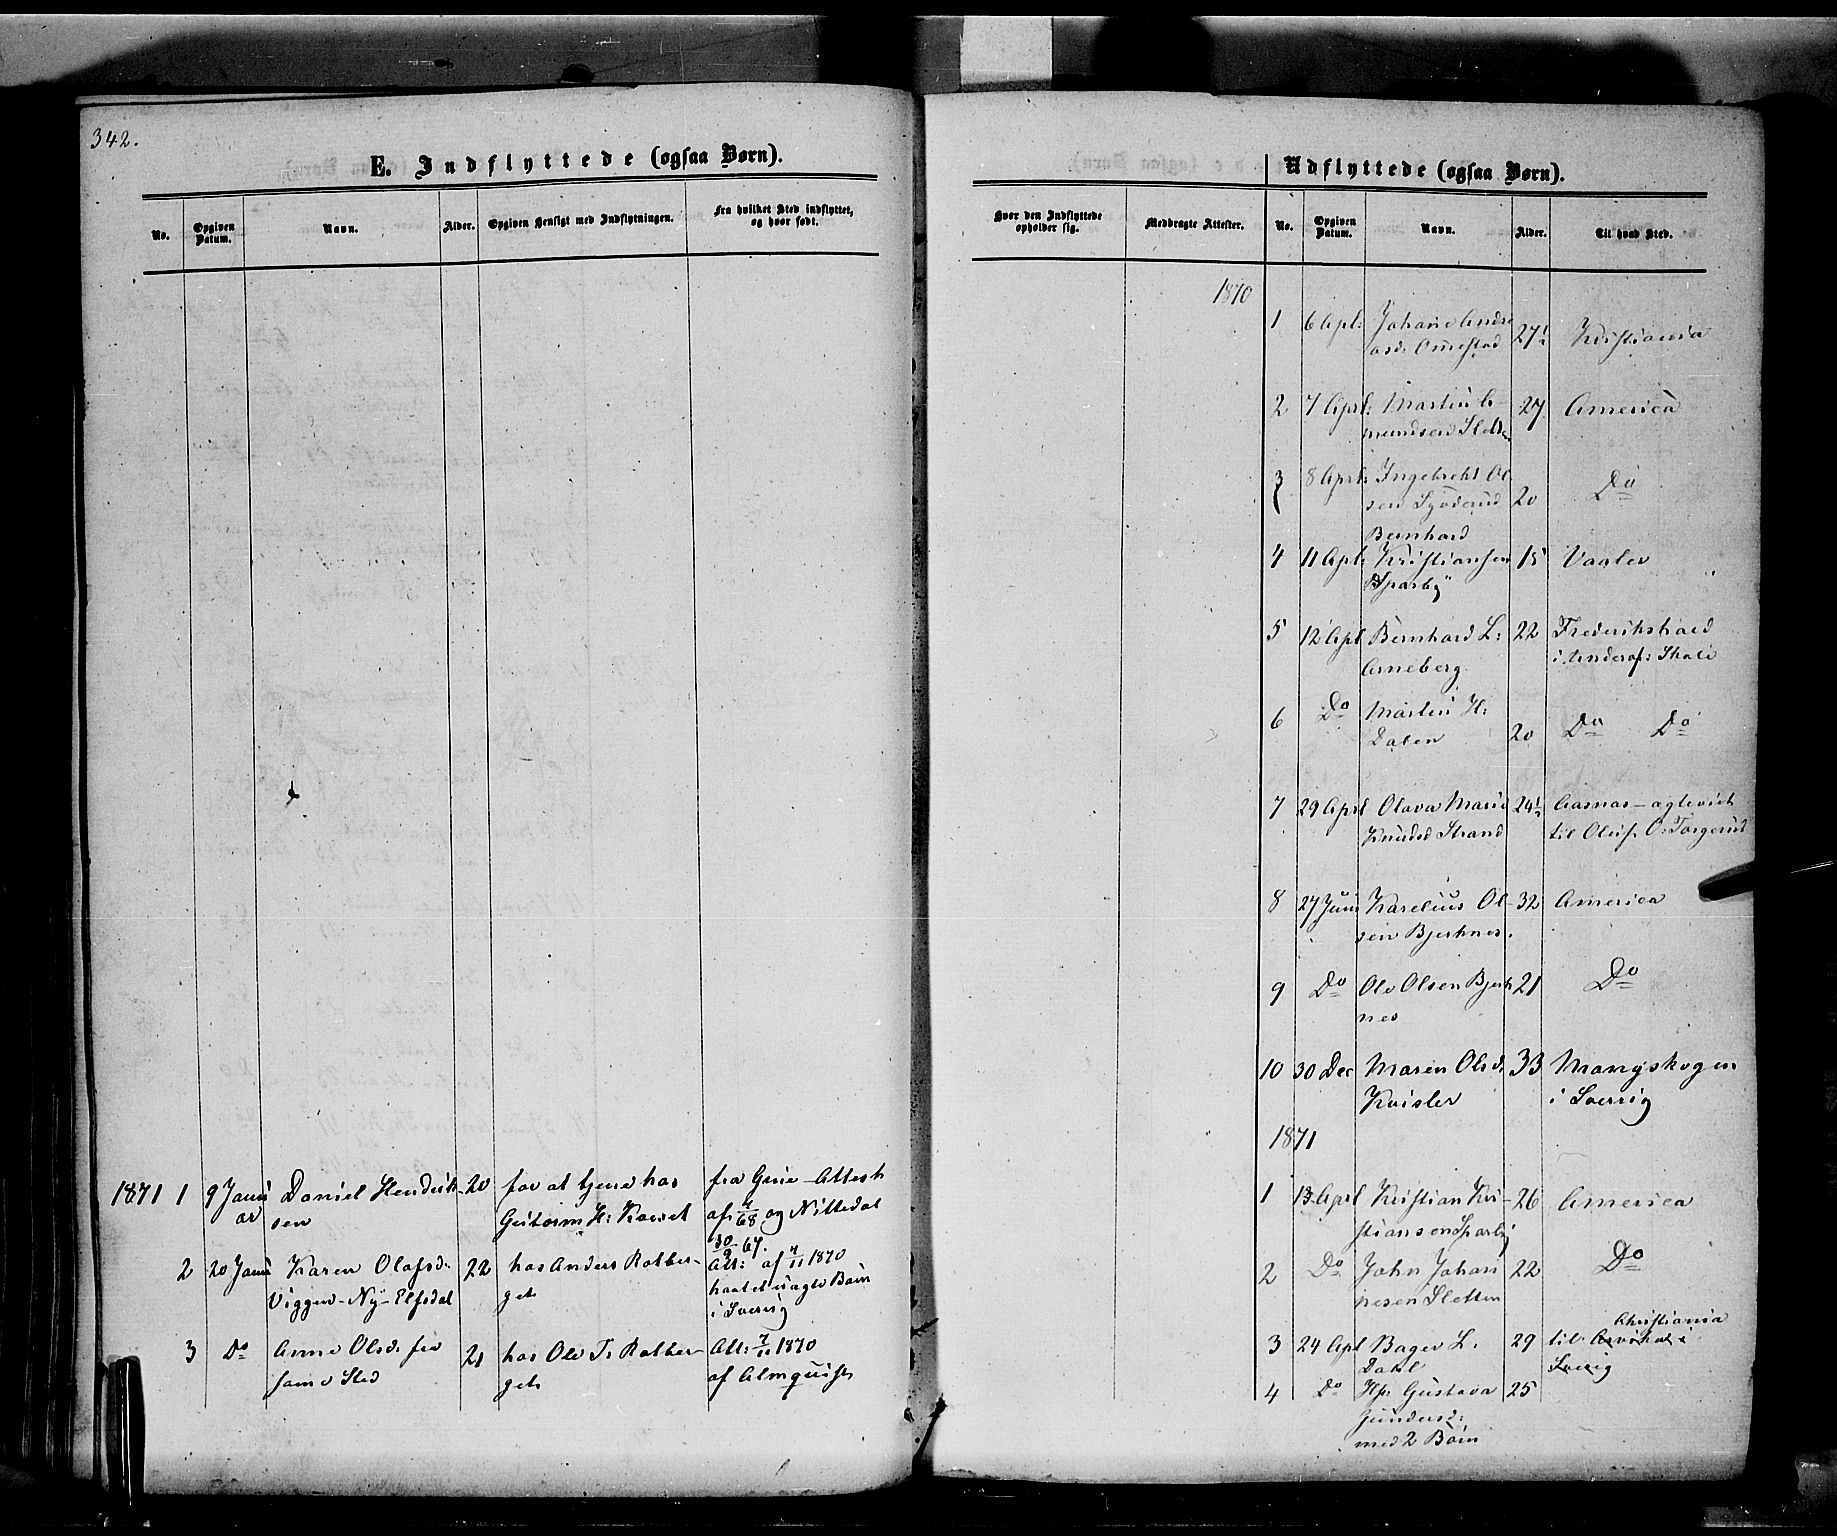 342.
E. Indflyttede (ogsaa Børn).
No.
Opgiven Datum.
Navn.
Alder.
Opgiven Hensigt med Indflytningen.
Fra hvilket Sted indflyttet, og hvor født.
1871 1 9 Janu Daniel Hendrik- 20 for at tjene hos fra Grue - Attest
ar sen Gutorm H: af 4/68 og Nittedal
30/9 67.
2 20 Janu Karen Olafsd. 22 hos Anders Rotber- Att: af 4/11 1870
Viggen - Ny - Elfsdal get havt et uægte Barn
i Sverrig
3 Do Anne Olsd. fra 21 hos Ole T. Rotber- Att: 7/11 1870
samme Sted get af Almquist
Udflyttede (ogsaa Børn).
Hvor den Indflyttede opholder sig.
Medbragte Attester.
No.
Opgiven Datum.
Navn.
Alder.
Til hvad Sted.
1870
1 6 Apl: Johane Andre 27½ Kristiania
asd. Omestad
2 7 Aprl: Martin A- 27 America
mundsen Slette
3 8 Aprl: Ingebreht Ol 20 Do
sen
Bernhard
4 11 Apl: Kristiansen 15 Vaaler
Sparby
5 12 Apl Bernhard L: 22 Frederikstad
Arneberg i Underof: Skole
6 Do Martin H: 20 Do Do
Dalen
7 29 Aprl Olava Marie 24½ Aasnes - ægteviet
Knudsd Strand til Oluf O: Torgerud
8 27 Juni Karelius Ol 32 America
sen Bjerknes.
9 Do Ole Olsen Bjerk 21 Do
nes
10 30 Dec Maren Olsd. 33 Mangskogen
Kvisler i Sverrig
1871
1 13 Aprl Kristian Kri- 26 America
stiansen Sparby
2 Do John Johan 22 Do
nesen Sletten
Christiania
3 24 Apl Bager L. 29 til Arvika i
Dahl Sverig
4 Do Hst Gustava 25
Gundersd:
med 2 Børn